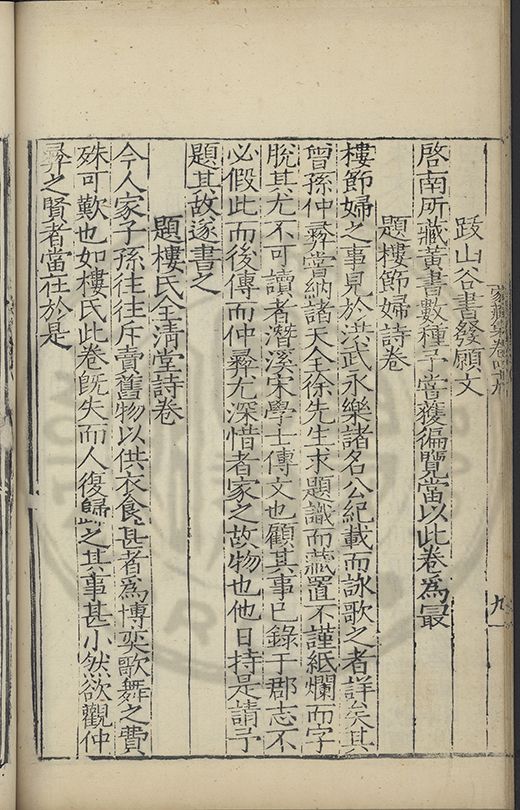 家藏集卷四九
九
跋山谷書發願文
啓南所藏黃書數種予嘗獲徧覽當以此卷爲最
題樓節婦詩卷
樓節婦之事見於洪武永樂諸名公紀載而詠歌之者詳矣其
曾孫仲彞嘗納諸天全徐先生求題識而藏置不謹紙爛而字
脫其尤不可讀者潛溪宋學士傳文也顧其事已錄于郡志不
必假此而後傳而仲彞尤深惜者家之故物也他日持是請予
題其故遂書之
題樓氏全清堂詩卷
今人家子孫往往斥賣舊物以供衣食甚者爲博奕歌舞之費
殊可歎也如樓氏此卷旣失而人復歸之其事甚小然欲觀仲
彞之賢者當在於是